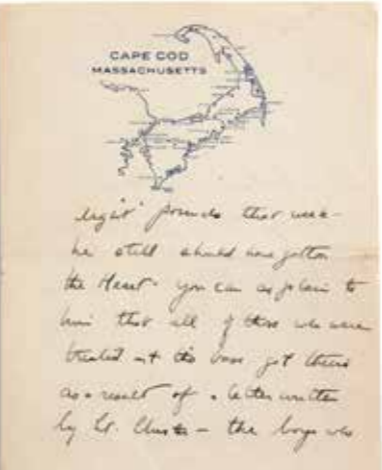 CAPE COD
MASSACHUSETTS
that
he still should have gotten
the Heart - you can explain to
him that all of those who were
treated at the base got theirs
as a result of a letter written
by Lt. - the boys who